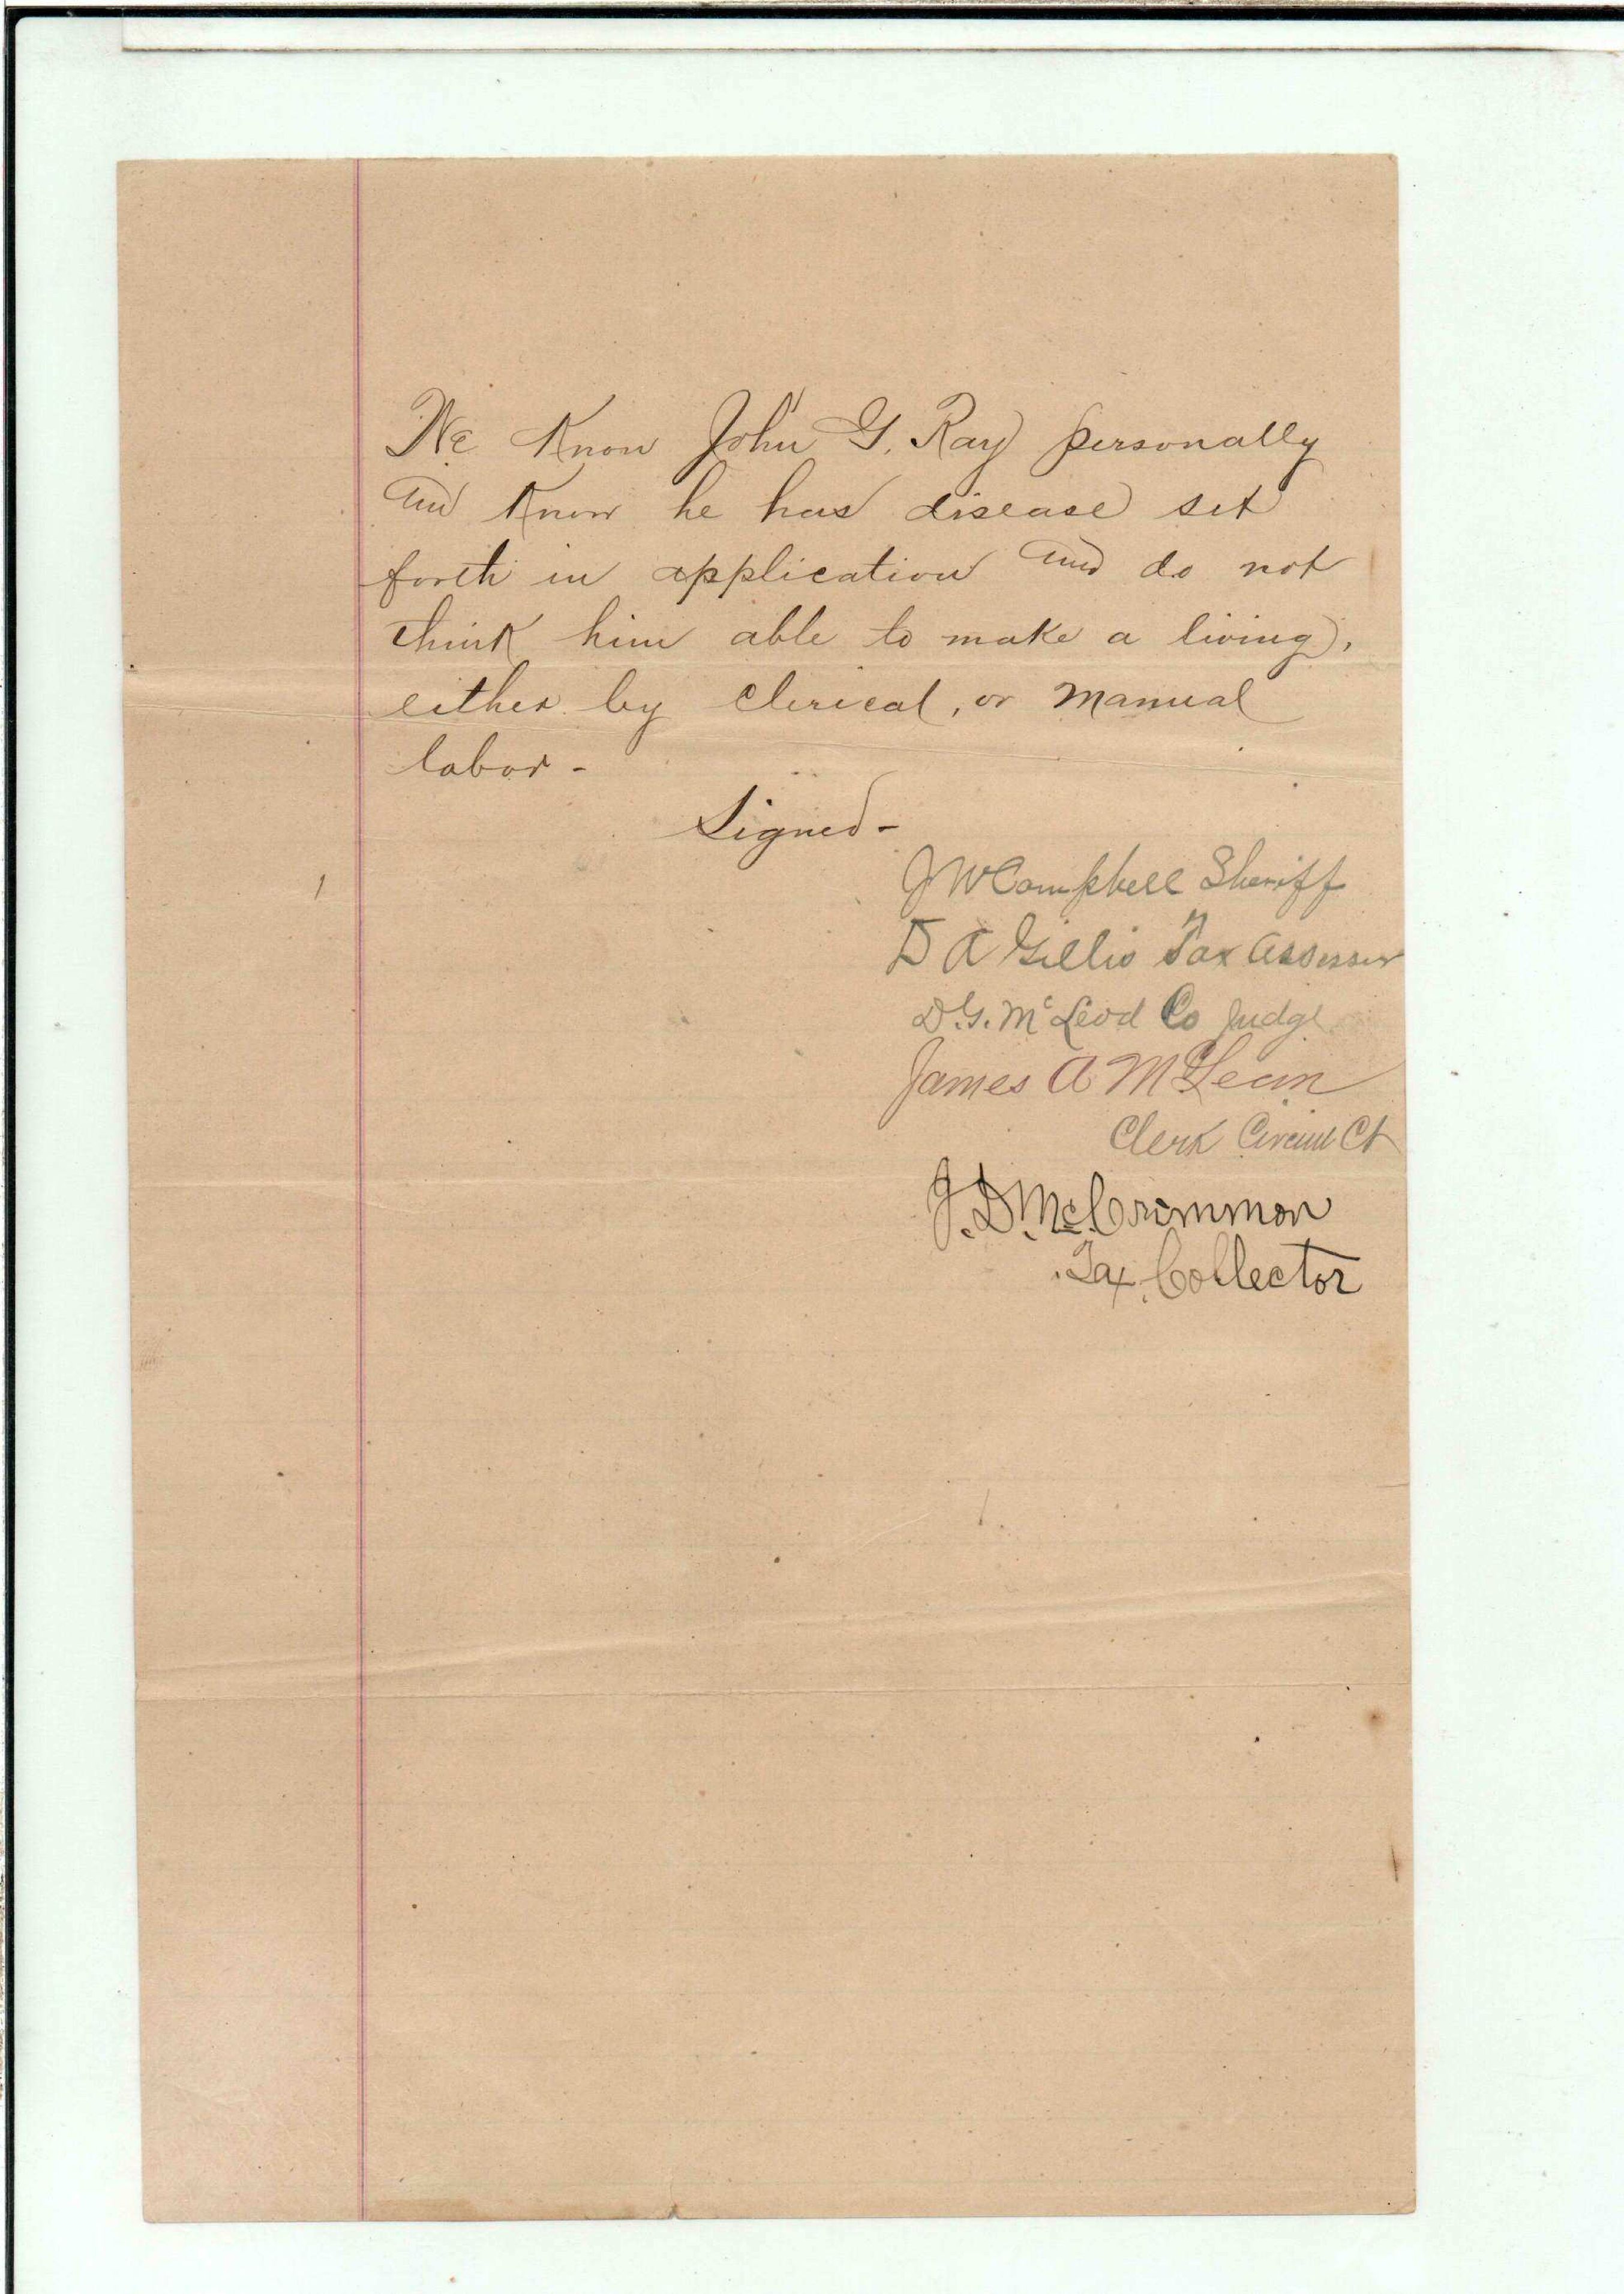 We Know John G. Ray personally
and Know he has disease set
forth in application and do not
think him able to make a living,
either by Clerical, or Manual
labor -
Signed -
J W Campbell Sheriff
D A Gillis Tax Assessor
D. G. McLeod Co Judge
James A McLean
Clerk Circuit Ct
J. D. McCrimmon
Tax Collector